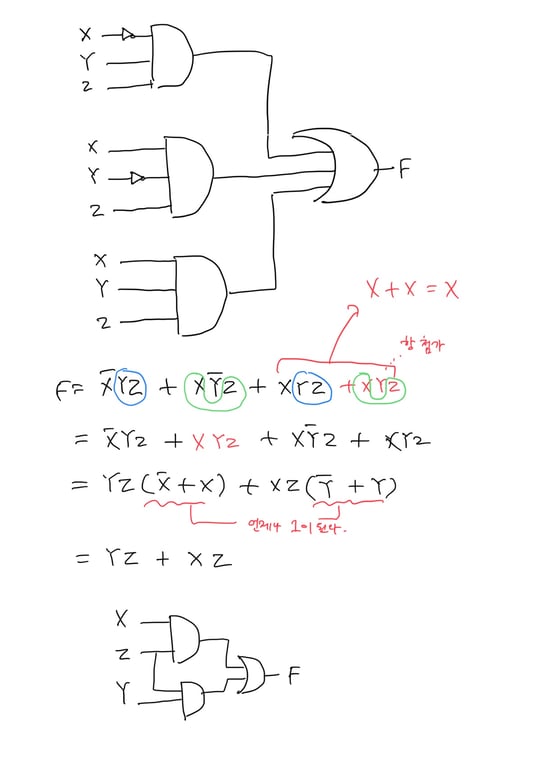 X
Y
Z
X
Y
Z
F
X
Y
Z
X + X = X
항 첨가
F = X̅YZ + XY̅Z + XYZ + XYZ
= X̅YZ + XYZ + XY̅Z + XYZ
= YZ(X̅+X) + XZ(Y̅ + Y)
언제나 1이 된다.
= YZ + XZ
X
Z
Y
F